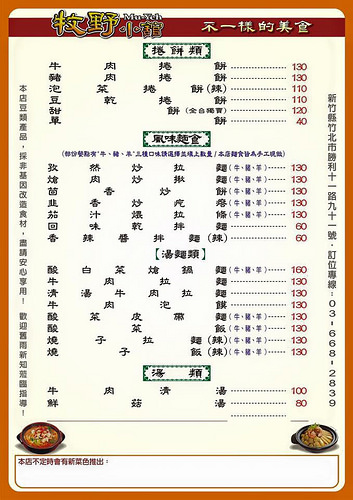 牧野小館 Mu Yeh 不一樣的美食
捲餅類
牛肉捲餅 130
豬肉捲餅 130
泡菜捲餅(辣) 110
豆乾捲餅 110
甜餅(全台獨賣) 120
單餅 40
風味麵食
(部份餐點有“牛、豬、羊”三種口味請選擇並填上數量/本店麵食皆為手工現做)
孜然炒拉麵(牛、豬、羊) 130
燴肉炒揪麵(牛、豬、羊) 130
茴香炒餅(牛、豬、羊) 130
韭香炒疙瘩(牛、豬、羊) 130
茄汁煨拉條(牛、豬、羊) 130
回味乾拌麵 60
香辣醬拌麵(辣) 60
【湯麵類】
酸白菜熗鍋麵(牛、豬、羊) 160
牛肉拉麵 130
清湯牛肉拉麵 130
牛肉泡饃 130
酸菜皮帶麵(牛、豬、羊) 130
酸菜飯(牛、豬、羊) 130
燒子拉麵(辣)(牛、豬、羊) 130
燒子飯(辣)(牛、豬、羊) 130
湯類
牛肉清湯 100
鮮菇湯 80
本店豆類產品，採非基因改造食材，盡請安心享用！ 歡迎舊雨新知蒞臨指導！
新竹縣竹北市勝利十一路九十一號．訂位專線：03-668-2839
本店不定時會有新菜色推出：